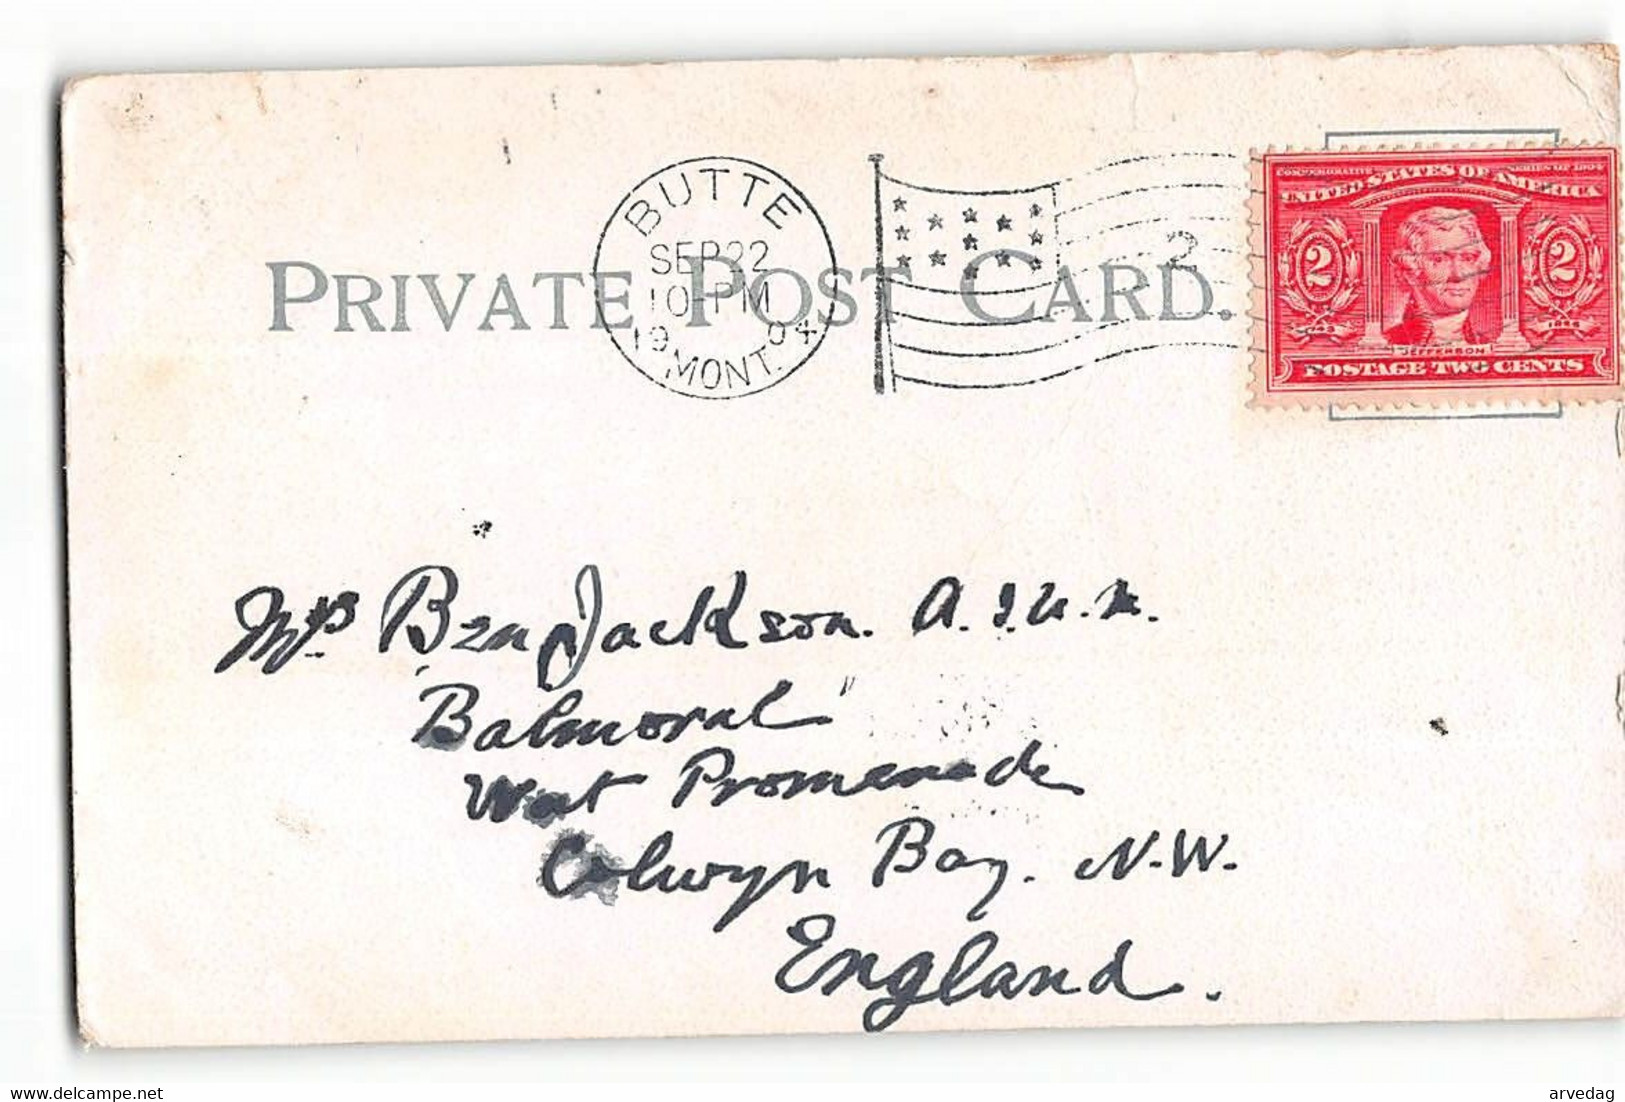 BUTTE
SEP 22
10-PM
1904
MONT.
2
PRIVATE POST CARD.
COMMEMORATIVE SERIES OF 1904
UNITED STATES OF AMERICA
2 2
1803
JEFFERSON
POSTAGE TWO CENTS
Mr Ben Jackson. A.
"Balmoral"
West Promenade
Colwyn Bay. N.W.
England.
www.delcampe.net
arvedag